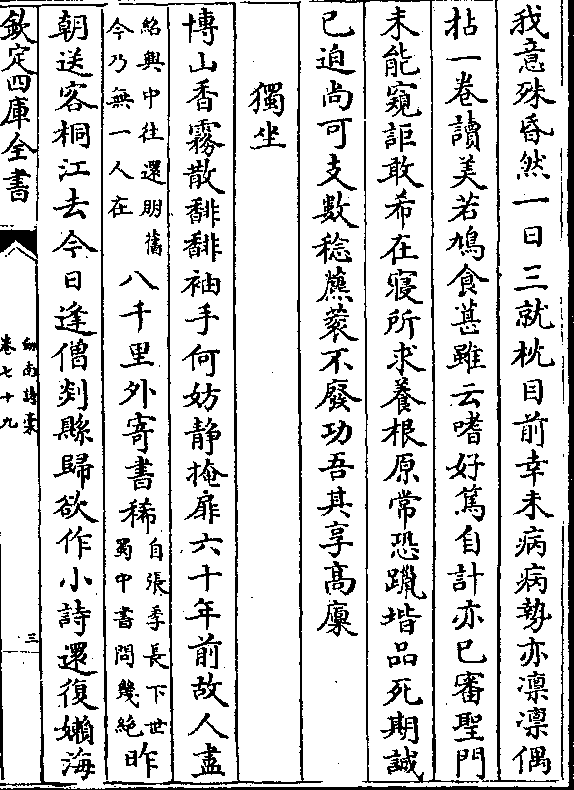 我意殊昏然一日三就枕目前幸未病病勢亦凛凛偶
拈一卷讀美若鳩食葚雖云嗜好篤自計亦已審聖門
未能窺詎敢希在寢所求養根原常恐躐堦品死期誠
已迫尚可支數稔藨蔉不廢功吾其享高廩
獨坐
博山香霧散馡馡袖手何妨静掩扉六十年前故人盡
紹興中往還朋舊今乃無一人在八千里外寄書稀自張季長下世蜀中書問幾絶昨
朝送客桐江去今日逢僧剡縣歸欲作小詩還復嬾海
欽定四庫全書
劍南詩稾
卷七十九
三